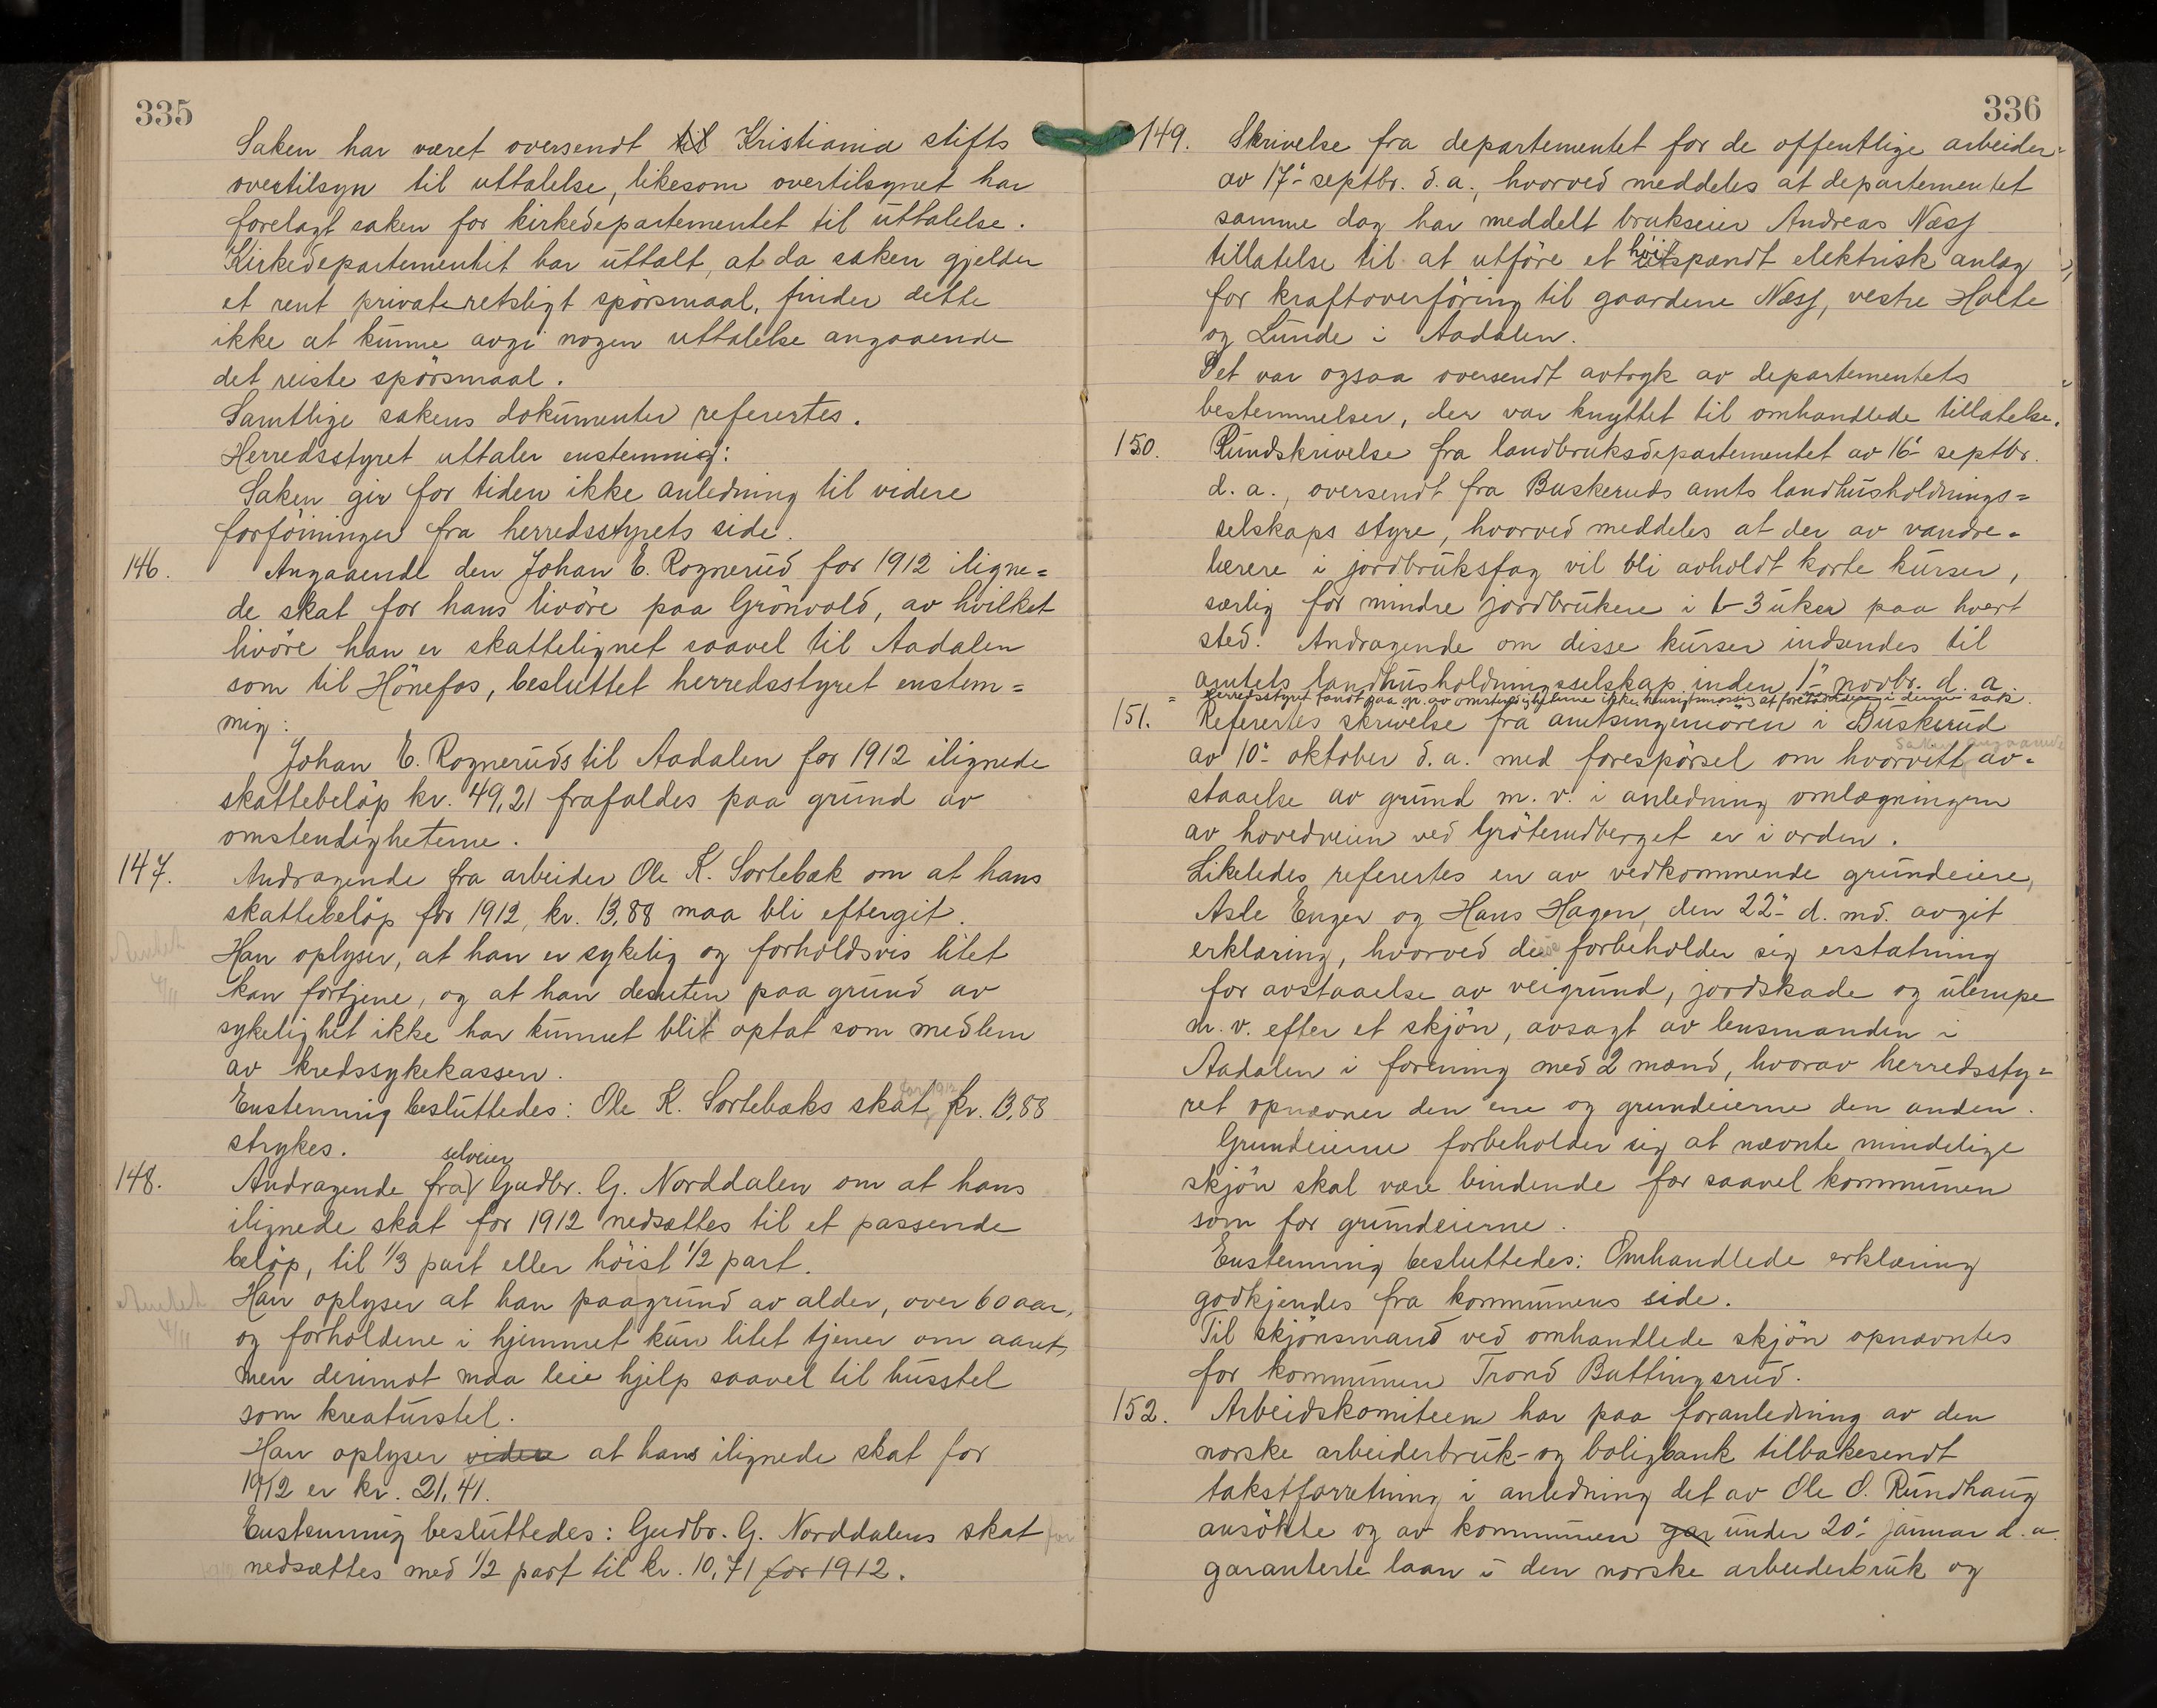 335
Saken har været oversendt til Kristiania stifts
overtilsyn til uttalelse, likesom overtilsynet har
forelagt saken for kirkedepartementet til uttalelse.
Kirkedepartementet har uttalt, at da saken gjelder
et rent privatretsligt spörsmaal, finder dette
ikke at kunne avgi nogen uttalelse angaaende
det reiste spörsmaal.
Samtlige sakens dokumenter refertes.
Herredsstyret uttaler enstemmig:
Saken gir for tiden ikke anledning til videre
forföininger fra herredsstyrets side.
146. Angaaende den Johan E. Rognerud for 1912 iligne=
de skat for hans livöre paa Grönvold, av hvilket
livöre han er skattelignet saavel til Aadalen
som til Hönefos, besluttet herredsstyret enstem=
mig:
Johan E. Rogneruds til Aadalen for 1912 ilignede
skattebelöp kr. 49,21 frafaldes paa grund av
omstendigheterne.
147. Andragende fra arbeider Ole K. Sortebæk om at hans
skattebelöp for 1912, kr. 13,88 maa bli eftergit.
Han oplyser, at han er sykelig og forholdsvis litet
kan fortjene, og at han desuten paa grund av
sykelighet ikke har kunnet blit optat som medlem
av kredssykekassen.
Enstemmig besluttedes: Ole K. Sortebæks skat for 1912 kr. 13,88
strykes.
148. Andragende fra selveier Gudbr. G. Norddalen om at hans
ilignede skat for 1912 nedsættes til et passende
belöp, til 1/3 part eller höist 1/2 part.
Han oplyser at han paa grund av alder, over 60 aar,
og forholdene i hjemmet kun litet tjener om aaret,
men derimot maa leie hjelp saavel til husstel
som kreaturstel.
Han oplyser videre at hans ilignede skat for
1912 er kr. 21,41.
Enstemmig besluttedes: Gudbr. G. Norddalens skat for
nedsættes med 1/2 part til kr. 10,71 for 1912.
336
149. Skrivelse fra departementet for de offentlige arbeider
av 17- septbr. d.a., hvorved meddeles at departementet
samme dag har meddelt brukseier Andreas Næss
tillatelse til at utföre et höitspændt elektrisk anlæg
for kraftoverföring til gaardene Næss, vestre Holte
og Lunde i Aadalen.
Det var ogsaa oversendt avtryk av departementets
bestemmelser, der var knyttet til omhandlede tillatelse.
150. Rundskrivelse fra landbruksdepartementet av 16- septbr.
d. a., oversendt fra Buskeruds amts landhusholdnings=
selskaps styre, hvorved meddeles at der av vandre=
lærere i jordbruksfag vil bli avholdt korte kurser,
særlig for mindre jordbrukere i 1-3 uker paa hvert
sted. Andragende om disse kurser indsendes til
amtets landhusholdningsselskap inden 1- novbr. d. a.
Herredsstyret fandt paa gr. av omstendigheterne ikke hensigtsmæssig at i denne sak.
151. Refertes skrivelse fra amtsingeniören i Buskerud
av 10- oktober d. a. med forespörsel om hvorvitt saken angaaende av=
staaelse av grund m. v. i anledning omlægningen
av hovedveien ved Gröterudberget er i orden.
Likeledes refertes en av vedkommende grundeiere,
Asle Enger og Hans Hagen, den 22- d. md. avgit
erklæring, hvorved de forbeholder sig erstatning
for avstaaelse av veigrund, jordskade og ulempe
m. v. efter et skjön, avsagt av lensmanden i
Aadalen i forening med 2 mænd, hvorav herredssty=
ret opnævner den ene og grundeierne den anden.
Grundeierne forbeholder sig at nævnte mindelige
skjön skal være bindende for saavel kommunen
som for grundeierne.
Enstemmig besluttedes: Omhandlede erklæring
godkjendes fra kommunens side.
Til skjönsmand ved omhandlede skjön opnævntes
for kommunen Trond Buttingsrud.
152. Arbeidskomiteen har paa foranledning av den
norske arbeiderbruk- og boligbank tilbakesendt
takstforretning i anledning det av Ole O. Rundhaug
ansökte og av kommunen gar under 20- januar d. a.
garanterte laan i den norske arbeiderbruk og